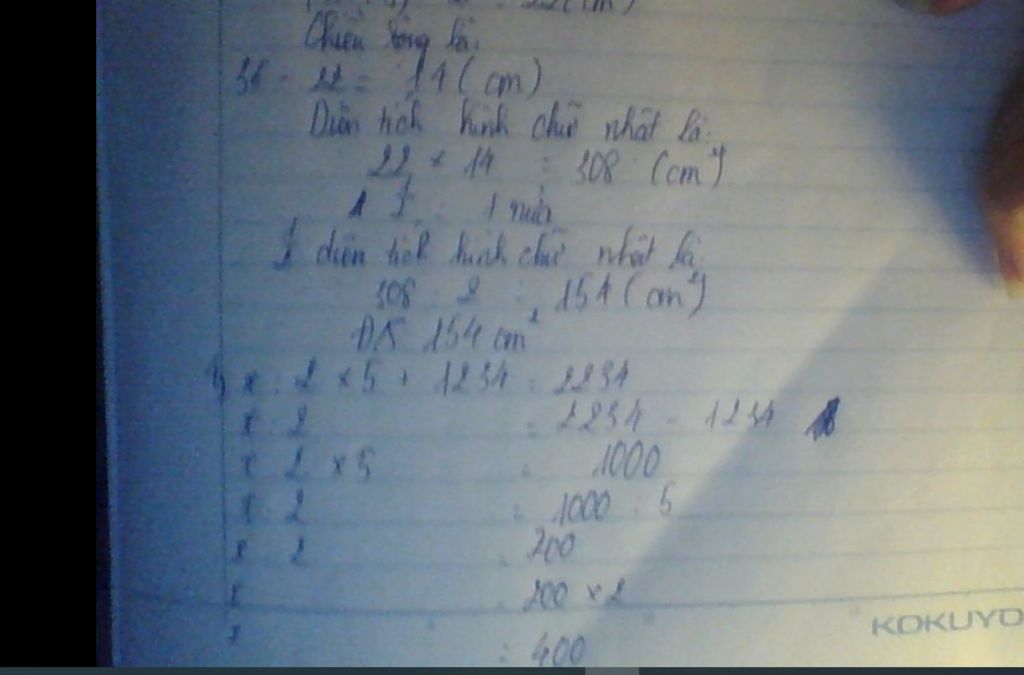 Chiều rộng là:
36 - 22 = 14 (cm)
Diện tích hình chữ nhật là:
22 x 14 = 308 (cm²)
1 nửa
diện tích hình chữ nhật là:
308 : 2 = 154 (cm²)
ĐS 154 cm²
x : 2 x 5 + 1234 = 2234
x : 2 = 2234 - 1234
x : 2 x 5 = 1000
x : 2 = 1000 : 5
x : 2 = 200
x = 200 x 2
x = 400
KOKUYO